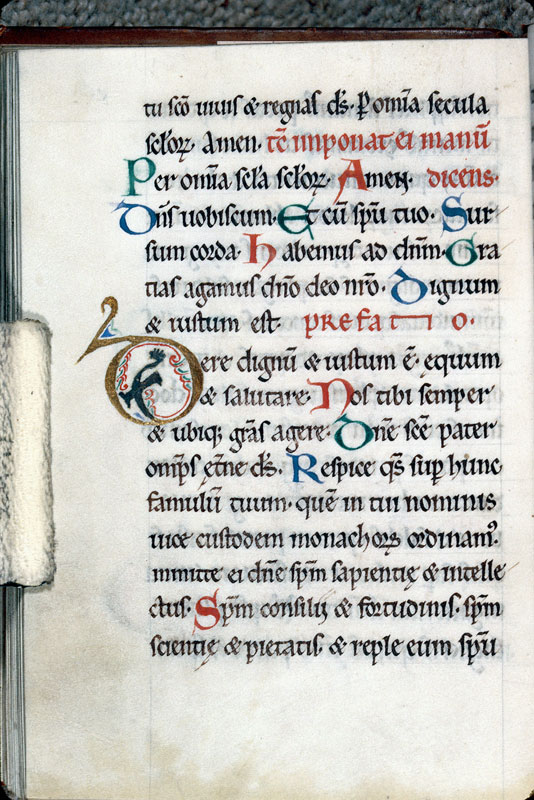 tu sc̄o uiuis & regnas d̄s. ꝑ om̄ia secula
sclo̵ꝝ. Amen. tc̄ imponat ei manū
Per om̄ia scl̄a sclo̵ꝝ. Amen. dicens.
Dn̄s uobiscum. Et cū spū tuo. Sur
sum corda. Habemus ad dn̄m. Gra
tias agamus dn̄o deo nr̄o. Dignum
& iustum est. prefatio.
Uere dignū & iustum ē. ęquum
& salutare. Nos tibi semper
& ubiq; gr̄as agere. Dn̄e sc̄e pater
om̄ps ęt̄ne d̄s. Respice q̄s sup̄ hunc
famulū tuum. quē in tui nominis
uice custodem monachoꝝ ordinamꝰ.
inmitte ei dn̄e sp̄m sapientię & intelle
ctus. Sp̄m consilii & fortudinis. sp̄m
scientię & pietatis. & reple eum sp̄u